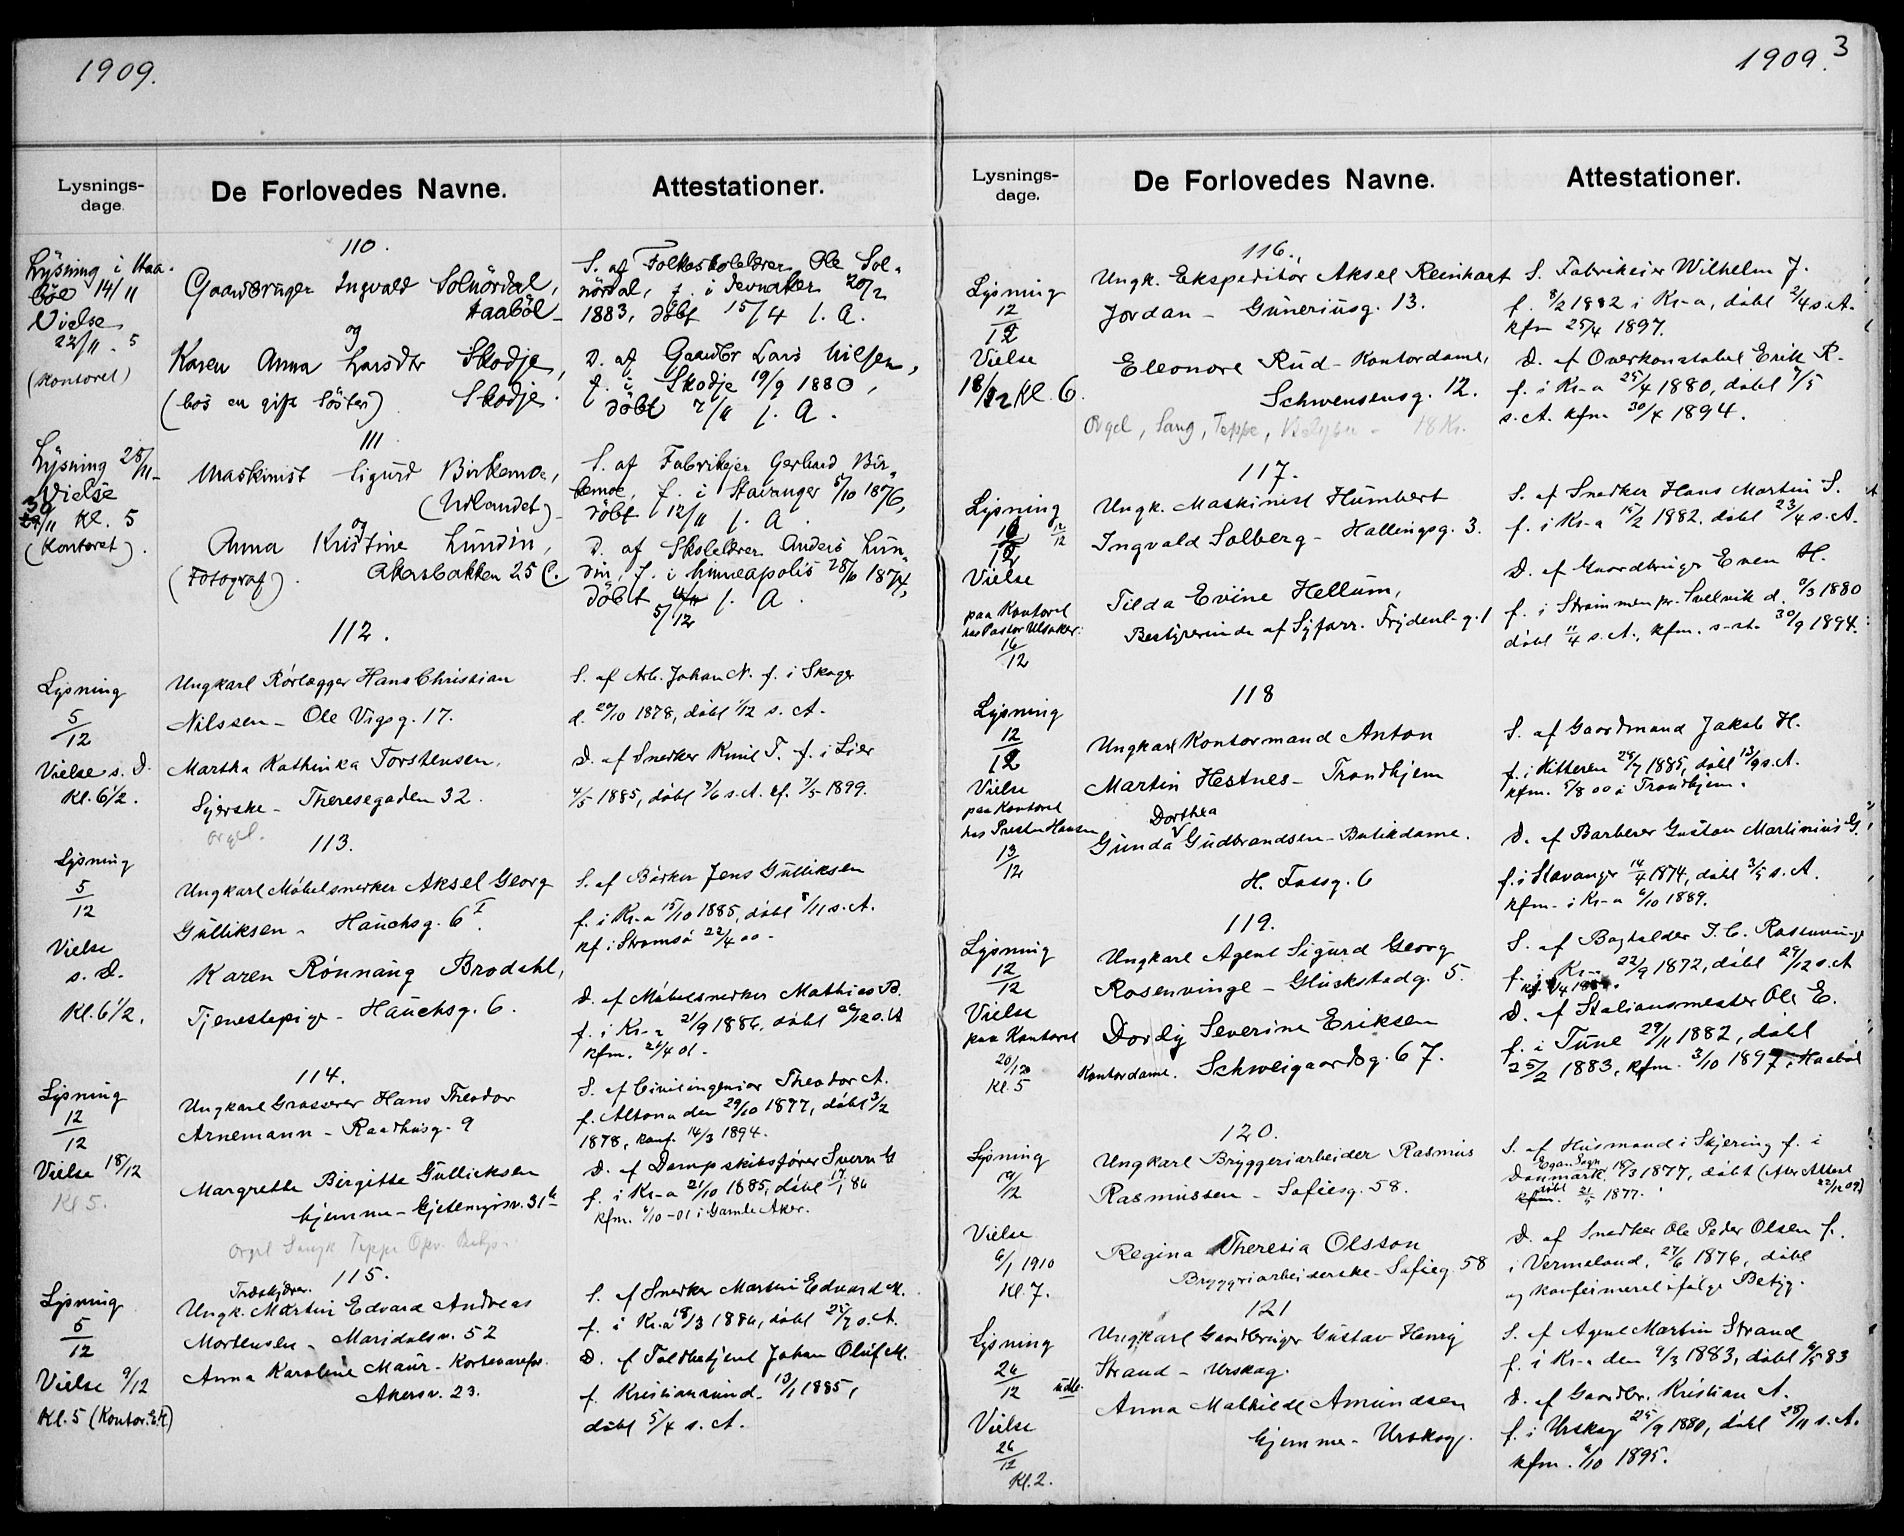 1909.
Lysnings-
dage.
De Forlovedes Navne.
Attestationer.
110.
Lysning i Haa-
böl 14/11
Vielse
22/11 - 5
(Kontoret)
Gaardbruger Ingvald Solnördal,
Haaböl
og
Karen Anna Larsdtr Skodje,
(hos en gift Söster) Skodje.
S. af Folkeskolelærer Ole Sol-
nördal, f. i Jevnaker 20/2
1883, döbt 15/4 s. A.
D. af Gaardbr Lars Nilsen,
f. i Skodje 19/9 1880,
döbt 7/11 s. A.
111.
Lysning 28/11
Vielse
30/11 Kl. 5
(Kontoret).
Maskinist Sigurd Birkemoe,
(Udlandet)
og
Anna Kristine Lundin,
(Fotograf). Akersbakken 25 C.
S. af Fabrikejer Gerhard Bir-
kemoe, f. i Stavanger 5/10 1876,
döbt 12/11 s. A.
D. af Skolelærer Anders Lun-
din, f. i Minneapolis 28/10 1874,
döbt s. A.
5/12
112.
Lysning
5/12
Vielse s. D.
Kl. 6 1/2.
Ungkarl Rörlægger Hans Christian
Nilssen - Ole Vigsg. 17.
Martha Kathinka Torstensen,
Syerske - Theresegaden 32.
Orgel.
S. af Arb. Johan N. f. i Skoger
d. 20/10 1878, döbt 1/12 s. A.
D. af Snedker Knut T. f. i Lier
4/5 1885, döbt 7/6 s. A. kf. 7/5 1899.
113.
Lysning
5/12
Vielse
s. D.
Kl. 6 1/2.
Ungkarl Möbelsnedker Aksel Georg
Gulliksen - Hauchsg. 6 I.
Karen Rönnaug Brodahl,
Tjenestepige - Hauchsg. 6.
S. af Börker Jens Gulliksen
f. i Kr-a 15/10 1885, döbt 8/11 s. A.
kf i Strömsö 22/4 00 -
D. af Möbelsnedker Mathias B.
f. i Kr-a 21/9 1886, döbt s. A
kfm. 21/4 01.
114.
Lysning
12/12
Vielse 18/12
Kl 5.
Ungkarl Grosserer Hans Theodor
Arnemann - Raadhusg. 9
Margrethe Birgitte Gullicksen
hjemme - Gjetemyrsv. 31
Orgel Sang Teppe
S. af Civilingeniør Theodor A.
f. Altona den 29/10 1877, döbt 3/2
1878, konf. 14/3 1894.
D. af Dampskibsfører Sverre G
f. i Kr-a 21/10 1885, döbt 17/1 86
kfm. 6/10 - 01 i Gamle Aker.
115.
Lysning
5/12
Vielse 9/12
Kl. 5 (Kontor. E.K)
Træskjærer
Ungk. Martin Edvard Andreas
Mortensen - Maridalsv. 52
Anna Karoline Maur - Kortevarefor.
Akersv. 23.
S. af Snedker Martin Edvard M.
f. i Kr.a 18/3 1886, döbt s. A.
D. af Toldbetjent Johan Oluf M.
f. Kristiansund 13/1 1885,
döbt 5/4 s. A.
1909.
3
Lysnings-
dage.
De Forlovedes Navne.
Attestationer.
116.
Lysning
12/12
Vielse
18/12 Kl. 6.
Ungk. Ekspeditör Aksel Reinhart
Jordan - Guneriusg. 13.
Eleonore Rud - Kontordame,
Schwensensg. 12.
Orgel, Sang, Teppe, Belysn - 18 Kr.
S. Fabrikeier Wilhelm J.
f. 8/2 1882 i Kr-a, döbt 2/4 s. A.
kfm 25/4 1897.
D. af Overkonstabel Erik R.
f. i Kr-a 25/4 1880, döbt 7/5
s. A. kfm. 30/4 1894.
117.
Lysning
12/12
Vielse
paa Kontoret
hos Pastor Ulsaker.
16/12
Ungk. Maskinist Humbert
Ingvald Solberg - Hallingsg. 3.
Tilda Evine Hellum,
Bestyrerinde af Syforr. Frydenl-g. 1
S. af Snedker Hans Martin S.
f. i Kr-a 15/2 1882, döbt 23/4 s. A.
D. af Gaardbruger Even H.
f. i Strømmen pr. Svelvik d. 9/3 1880
döbt 11/4 s. A., kfm. s-st. 30/9 1894.
118
Lysning
12/12
Vielse
paa Kontoret
hos Presten Hansen
13/12
Ungkarl Kontormand Anton
Martin Hestnes - Trondhjem
Dorthea
Gunda Gudbrandsen - Butikdame.
H. Tossg. 6
S. af Gaardmand Jakob H.
f. i Hitteren 29/7 1885, döbt 13/9 s. A.
kfm. 5/8 00 i Trondhjem.
D. af Barberer Gustav Martinius G.
f. i Stavanger 14/4 1874, döbt 3/5 s. A.
kfm. i Kr-a 6/10 1889.
119.
Lysning
12/12
Vielse
paa Kontoret
20/12
Kl. 5
Ungkarl Agent Sigurd Georg
Rosenvinge - Gluckstadg. 5.
Dordy Severine Eriksen
Kontordame. Schweigaardsg. 67.
S. af Bogholder J. C. Rosenvinge
f. i Kr-a 22/9 1872, döbt 29/12 s. A
D. af Stationsmester Ole E.
f. i Tune 29/11 1882, döbt
25/2 1883, kfm. 3/10 1897 i Haaböl
120.
Lysning
19/12
Vielse
6/1 1910
Kl. 7.
Ungkarl Bryggeriarbeider Rasmus
Rasmussen - Sofiesg. 58.
Regina Theresia Olsson
Bryggeriarbeiderske - Sofieg. 58
S. af Husmand i Skjering f. i
Egaa Sogn
Danmark. 18/3 1877, döbt (Alt. Attest
kfm. döbt 21/5 1877. 22/12 09)
D. af Snedker Ole Peder Olsen f.
i Vermeland, 27/6 1876, döbt
og konfirmeret ifølge Betyg.
121
Lysning
26/12 udl.
Vielse
26/12
Kl. 2.
Ungkarl Gaardbruger Gustav Henry
Strand - Urskog.
Anna Mathilde Amundsen
hjemme - Urskog.
S. af Agent Martin Strand
f. i Kr-a den 9/3 1883, döbt 6/5 83
D. af Gaardbr. Kristian A.
f. i Urskog 25/9 1880, döbt 28/11 s. A.
kfm. 6/10 1895.